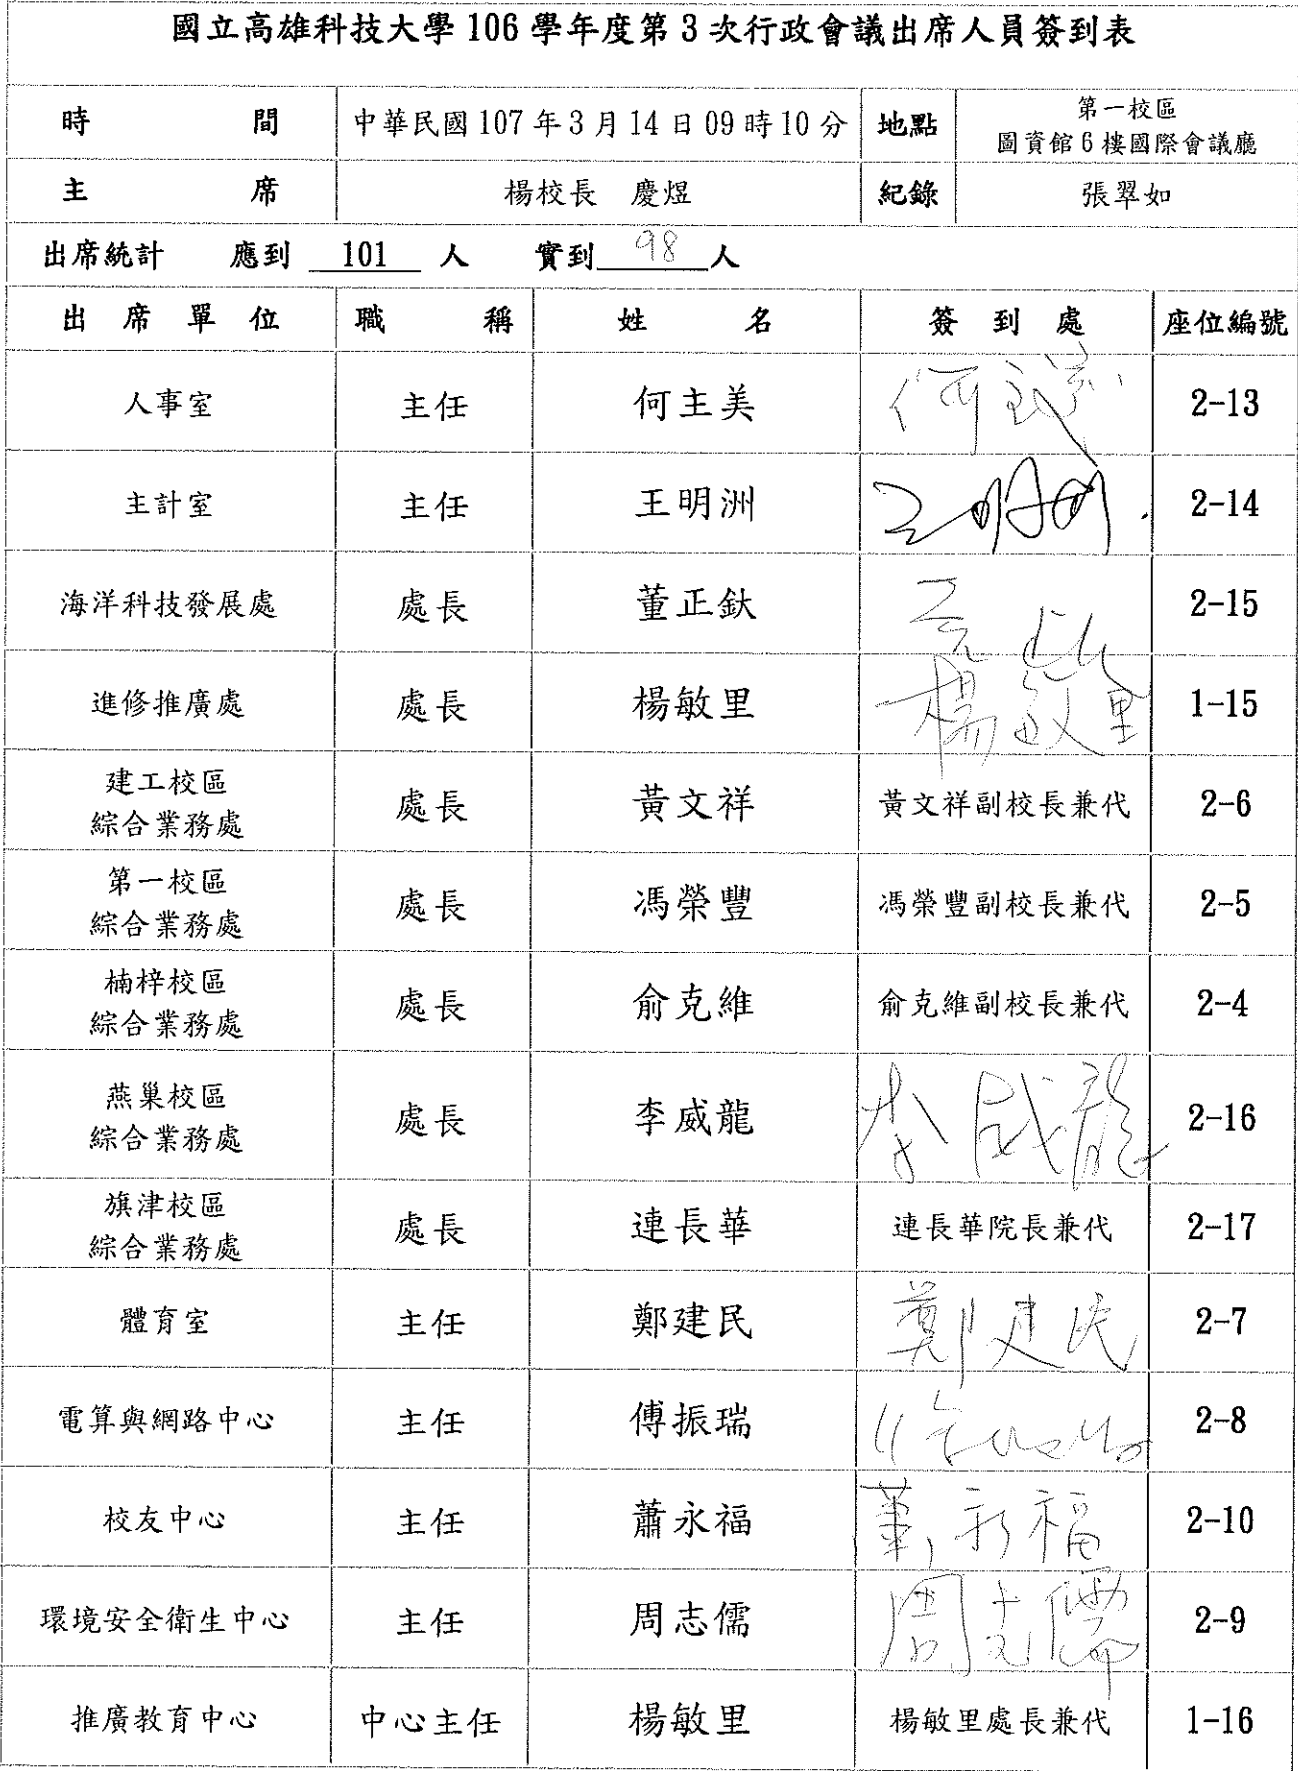 國立高雄科技大學 106 學年度第 3 次行政會議出席人員簽到表
時 間 中華民國 107 年 3 月 14 日 09 時 10 分 地點 第一校區
圖資館 6 樓國際會議廳
主 席 楊校長 慶煜 紀錄 張翠如
出席統計 應到 101 人 實到 98 人
出 席 單 位 職 稱 姓 名 簽 到 處 座位編號
人事室 主任 何主美 2-13
主計室 主任 王明洲 王明洲 2-14
海洋科技發展處 處長 董正釱 2-15
進修推廣處 處長 楊敏里 楊敏里 1-15
建工校區
綜合業務處 處長 黃文祥 黃文祥副校長兼代 2-6
第一校區
綜合業務處 處長 馮榮豐 馮榮豐副校長兼代 2-5
楠梓校區
綜合業務處 處長 俞克維 俞克維副校長兼代 2-4
燕巢校區
綜合業務處 處長 李威龍 李威龍 2-16
旗津校區
綜合業務處 處長 連長華 連長華院長兼代 2-17
體育室 主任 鄭建民 鄭建民 2-7
電算與網路中心 主任 傅振瑞 2-8
校友中心 主任 蕭永福 2-10
環境安全衛生中心 主任 周志儒 周志儒 2-9
推廣教育中心 中心主任 楊敏里 楊敏里處長兼代 1-16